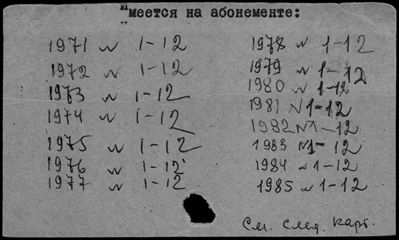 "меется на абонементе:
1971 № 1-12
1972 № 1-12
1973 № 1-12
1974 № 1-12
1975 № 1-12
1976 № 1-12
1977 № 1-12
1978 № 1-12
1979 № 1-12
1980 № 1-12
1981 № 1-12
1982 № 1-12
1983 № 1-12
1984 № 1-12
1985 № 1-12
См. след. карт.